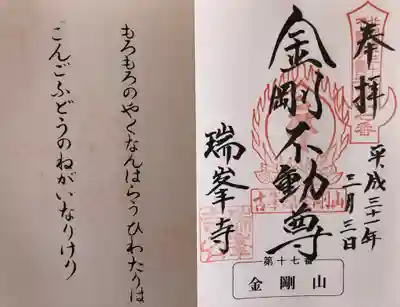 奉拝
平成三十一年
三月三日
金剛不動尊
瑞峯寺
第十七番
金剛山
もろもろのやくなんはらうひわたりは
こんごふどうのねがいなりけり